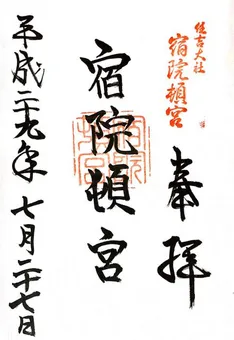 住吉大社
宿院頓宮
奉拝
宿院頓宮
平成二十九年七月二十七日